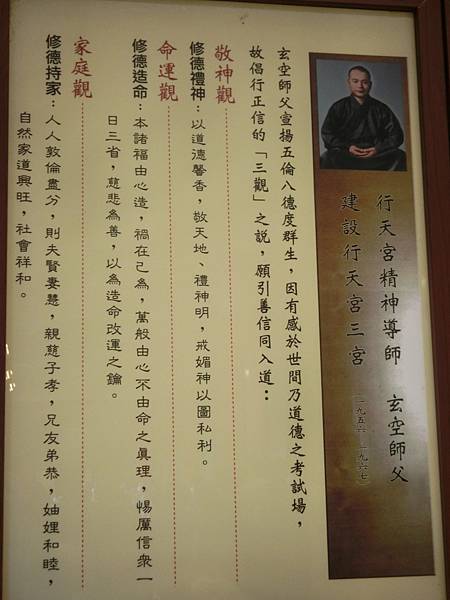 行天宮精神導師　玄空師父
建設行天宮三宮（一九五六～一九六七）
玄空師父宣揚五倫八德度群生，因有感於世間乃道德之考試場，
故倡行正信的「三觀」之說，願引善信同入道：
敬神觀
修德禮神：以道德馨香，敬天地、禮神明，戒媚神以圖私利。
命運觀
修德造命：本諸福由心造，禍在己為，萬般由心不由命之真理，惕厲信眾一
日三省，慈悲為善，以為造命改運之鑰。
家庭觀
修德持家：人人敦倫盡分，則夫賢妻慧，親慈子孝，兄友弟恭，妯娌和睦，
自然家道興旺，社會祥和。